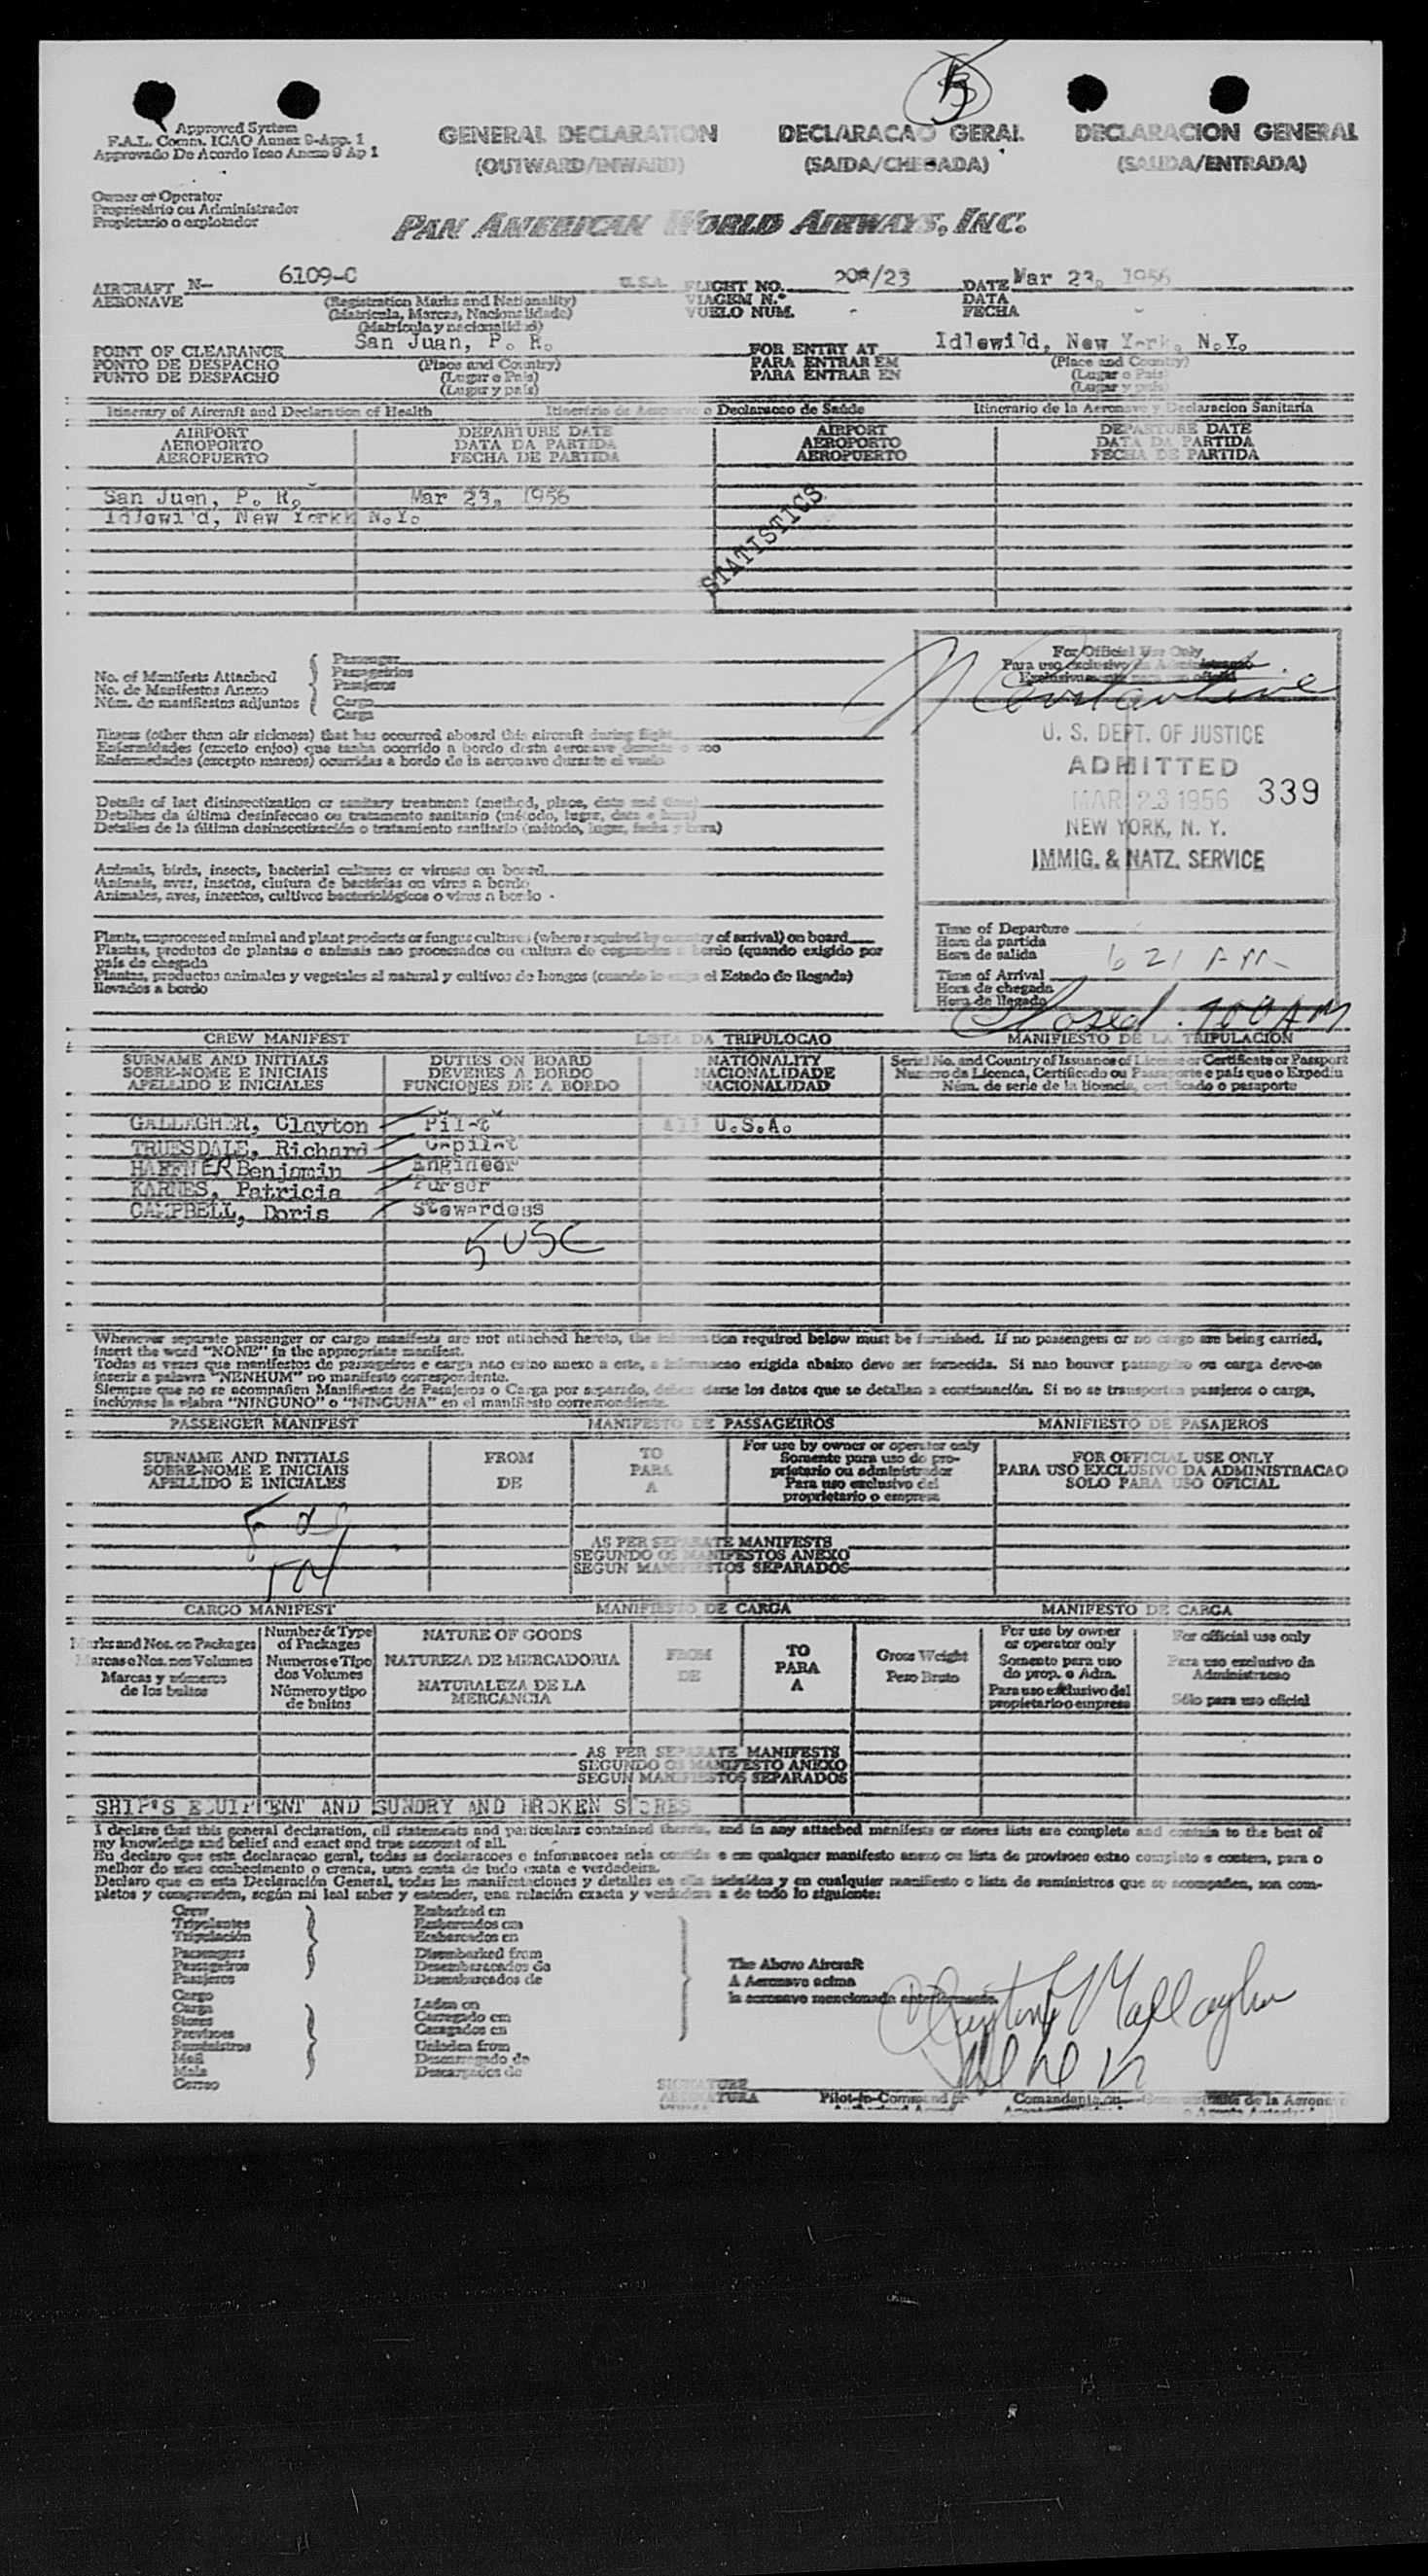 5
Approved System
F.A.L. Comm. ICAO Annex 9-App. 1
Approvado De Acordo Icao Anexo 9 Ap 1
GENERAL DECLARATION
(OUTWARD/INWARD)
DECLARACAO GERAL
(SAIDA/CHEGADA)
DECLARACION GENERAL
(SALIDA/ENTRADA)
Owner or Operator
Proprietário ou Administrador
Propietario o explotador
PAN AMERICAN WORLD AIRWAYS, INC.
AIRCRAFT N- 6109-C U.S.A. FLIGHT NO. /23 DATE Mar 23, 1956
AERONAVE (Registration Marks and Nationality) VIAGEM N.º DATA
(Matricula, Marcas, Nacionalidade) VUELO NUM. FECHA
(Matrícula y nacionalidad)
POINT OF CLEARANCE San Juan, P. R. FOR ENTRY AT Idlewild, New York, N.Y.
PONTO DE DESPACHO (Place and Country) PARA ENTRAR EM (Place and Country)
PUNTO DE DESPACHO (Lugar e País) PARA ENTRAR EN (Lugar e País)
(Lugar y país) (Lugar y país)
Itinerary of Aircraft and Declaration of Health Itinerário de Aeronave e Declaracao de Saúde Itinerario de la Aeronave y Declaracion Sanitaria
AIRPORT DEPARTURE DATE AIRPORT DEPARTURE DATE
AEROPORTO DATA DA PARTIDA AEROPORTO DATA DA PARTIDA
AEROPUERTO FECHA DE PARTIDA AEROPUERTO FECHA DE PARTIDA
San Juan, P. R. Mar 23, 1956
Idlewild, New York N.Y.
STATISTICS
No. of Manifests Attached
No. de Manifestos Anexo
Núm. de manifiestos adjuntos
Passenger
Passageirios
Pasajeros
Cargo
Carga
For Official Use Only
Para uso exclusivo da Administracao
Constantine
U. S. DEPT. OF JUSTICE
ADMITTED
MAR 23 1956 339
NEW YORK, N. Y.
IMMIG. & NATZ. SERVICE
Illness (other than air sickness) that has occurred aboard this aircraft during flight
Enfermidades (exceto enjoo) que tenha ocorrido a bordo desta aeronave durante o voo
Enfermedades (excepto mareos) ocurridas a bordo de la aeronave durante el vuelo
Details of last disinsectization or sanitary treatment (method, place, date and time)
Detalhes da última desinfeccao ou tratamento sanitario (método, lugar, data e hora)
Detalles de la última desinsectización o tratamiento sanitario (método, lugar, fecha y hora)
Animals, birds, insects, bacterial cultures or viruses on board
Animais, aves, insetos, clutura de bactérias ou virus a bordo
Animales, aves, insectos, cultivos bacteriológicos o virus a bordo
Plants, unprocessed animal and plant products or fungus cultures (where required by country of arrival) on board
Plantas, produtos de plantas e animais nao processados ou cultura de cogumelos a bordo (quando exigido por
país de chegada
Plantas, productos animales y vegetales al natural y cultivos de hongos (cuando lo exija el Estado de llegada)
llevados a bordo
Time of Departure
Hora da partida
Hora de salida
6 21 AM
Time of Arrival
Hora de chegada
Hora de llegada
Closed 700 AM
CREW MANIFEST LISTA DA TRIPULOCAO MANIFIESTO DE LA TRIPULACION
SURNAME AND INITIALS DUTIES ON BOARD NATIONALITY Serial No. and Country of Issuance of License or Certificate or Passport
SOBRE-NOME E INICIAIS DEVERES A BORDO NACIONALIDADE Numero da Licenca, Certificado ou Passaporte e país que o Expediu
APELLIDO E INICIALES FUNCIONES DE A BORDO NACIONALIDAD Núm. de serie de la licencia, certificado o pasaporte
GALLAGHER, Clayton Pilot All U.S.A.
TRUESDALE, Richard Copilot
HAFFNER Benjamin Engineer
KARNES, Patricia Purser
CAMPBELL, Doris Stewardess
5 USC
Whenever separate passenger or cargo manifests are not attached hereto, the information required below must be furnished. If no passengers or no cargo are being carried,
insert the word "NONE" in the appropriate manifest.
Todas as vezes que manifestos de passageiros e carga nao estao anexo a este, a informacao exigida abaixo deve ser fornecida. Si nao houver passageiro ou carga deve-se
inserir a palavra "NENHUM" no manifesto correspondente.
Siempre que no se acompañen Manifiestos de Pasajeros o Carga por separado, deben darse los datos que se detallan a continuación. Si no se transportan pasajeros o carga,
inclúyase la plabra "NINGUNO" o "NINGUNA" en el manifiesto correspondiente.
PASSENGER MANIFEST MANIFESTO DE PASSAGEIROS MANIFIESTO DE PASAJEROS
SURNAME AND INITIALS
SOBRE-NOME E INICIAIS
APELLIDO E INICIALES
FROM
DE
TO
PARA
A
For use by owner or operator only
Somente para uso do pro-
prietario ou administrador
Para uso exclusivo del
proprietario o empresa
FOR OFFICIAL USE ONLY
PARA USO EXCLUSIVO DA ADMINISTRACAO
SOLO PARA USO OFICIAL
AS PER SEPARATE MANIFESTS
SEGUNDO OS MANIFESTOS ANEXO
SEGUN MANIFIESTOS SEPARADOS
CARGO MANIFEST MANIFIESTO DE CARGA MANIFESTO DE CARGA
Marks and Nos. on Packages
Marcas e Nos. nos Volumes
Marcas y números
de los bultos
Number & Type
of Packages
Numeros e Tipo
dos Volumes
Número y tipo
de bultos
NATURE OF GOODS
NATUREZA DE MERCADORIA
NATURALEZA DE LA
MERCANCIA
FROM
DE
TO
PARA
A
Gross Weight
Pezo Bruto
For use by owner
or operator only
Somente para uso
do prop. o Adm.
Para uso exclusivo del
propietario o empresa
For official use only
Para uso exclusivo da
Administracao
Sólo para uso oficial
AS PER SEPARATE MANIFESTS
SEGUNDO OS MANIFESTO ANEXO
SEGUN MANIFIESTOS SEPARADOS
SHIP'S EQUIPMENT AND SUNDRY AND BROKEN STORES
I declare that this general declaration, all statements and particulars contained therein, and in any attached manifests or stores lists are complete and contain to the best of
my knowledge and belief and exact and true account of all.
Eu declaro que esta declaracao geral, todas as declaracoes e informacoes nela contida e em qualquer manifesto anexo ou lista de provisoes estao completo e contem, para o
melhor do meu conhecimento o crenca, uma conta de tudo exata e verdadeira.
Declaro que en esta Declaración General, todas las manifestaciones y detalles en ella incluidos y en cualquier manifiesto o lista de suministros que se acompañen, son com-
pletos y comprenden, según mi leal saber y entender, una relación exacta y verdadera a de todo lo siguiente:
Crew
Tripulantes
Tripulación
Passengers
Passageiros
Pasajeros
Cargo
Carga
Stores
Provisoes
Suministros
Mail
Mala
Correo
Embarked on
Embarcados em
Embarcados en
Disembarked from
Desembaracados do
Desembarcados de
Laden on
Carregado em
Caragados en
Unladen from
Descarregado de
Descargados de
The Above Aircraft
A Aeronave acima
la aeronave mencionada anteriormente.
Clayton Gallagher
SIGNATURE
ASSINATURA
Pilot-in-Command or Comandante ou de la Aeronave